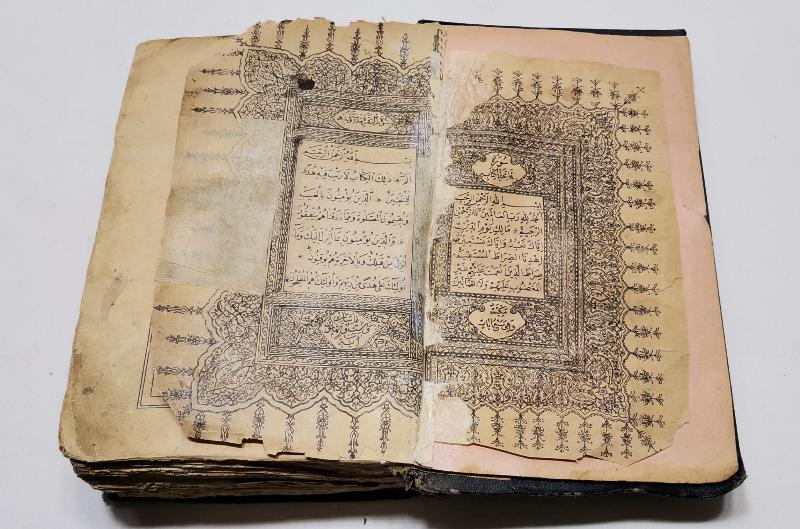 سُورَةُ
فَاتِحَةِ الْكِتَابِ
بِسْمِ اللهِ الرَّحْمٰنِ الرَّحِيمِ
اَلْحَمْدُ لِلّٰهِ رَبِّ الْعَالَمِينَ الرَّحْمٰنِ
الرَّحِيمِ مَالِكِ يَوْمِ الدِّينِ
اِيَّاكَ نَعْبُدُ وَاِيَّاكَ نَسْتَعِينُ
اِهْدِنَا الصِّرَاطَ الْمُسْتَقِيمَ
صِرَاطَ الَّذِينَ اَنْعَمْتَ عَلَيْهِمْ غَيْرِ
الْمَغْضُوبِ عَلَيْهِمْ وَلَا الضَّالِّينَ
مَكِّيَّةٌ
وَهِيَ سَبْعُ اٰيَاتٍ
بِسْمِ اللهِ الرَّحْمٰنِ الرَّحِيمِ
الٓمٓ ذٰلِكَ الْكِتَابُ لَا رَيْبَ فِيهِ هُدًى
لِلْمُتَّقِينَ اَلَّذِينَ يُؤْمِنُونَ بِالْغَيْبِ
وَيُقِيمُونَ الصَّلٰوةَ وَمِمَّا رَزَقْنَاهُمْ يُنْفِقُونَ
وَالَّذِينَ يُؤْمِنُونَ بِمَا اُنْزِلَ اِلَيْكَ وَمَا
اُنْزِلَ مِنْ قَبْلِكَ وَبِالْاٰخِرَةِ هُمْ يُوقِنُونَ
اُولٰئِكَ عَلٰى هُدًى مِنْ رَبِّهِمْ وَاُولٰئِكَ هُمُ الْمُفْلِحُونَ